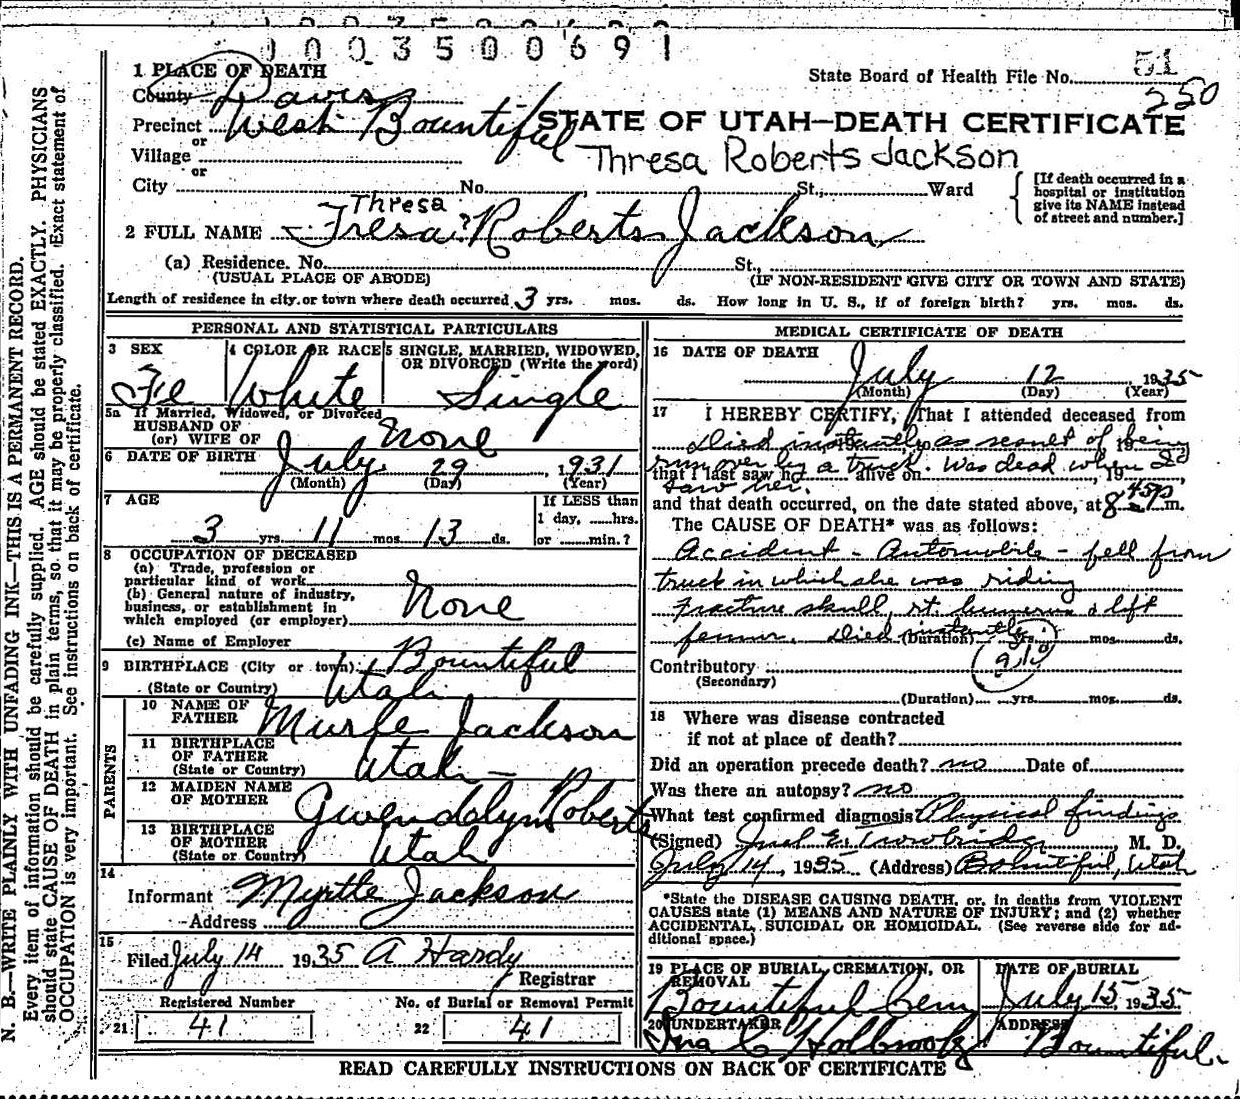 1003500691
1 PLACE OF DEATH
State Board of Health File No. 51
250
County Davis
Precinct West Bountiful
STATE OF UTAH—DEATH CERTIFICATE
or
Village
Thresa Roberts Jackson
or
City No. St., Ward
[If death occurred in a hospital or institution give its NAME instead of street and number.]
Thresa
2 FULL NAME Fresa? Roberts Jackson
(a) Residence. No. St.,
(USUAL PLACE OF ABODE) (IF NON-RESIDENT GIVE CITY OR TOWN AND STATE)
Length of residence in city or town where death occurred 3 yrs. mos. ds. How long in U. S., if of foreign birth? yrs. mos. ds.
PERSONAL AND STATISTICAL PARTICULARS
3 SEX 4 COLOR OR RACE 5 SINGLE, MARRIED, WIDOWED, OR DIVORCED (Write the word)
Fe White Single
5a If Married, Widowed, or Divorced
HUSBAND OF
(or) WIFE OF None
6 DATE OF BIRTH July 29, 1931
(Month) (Day) (Year)
7 AGE If LESS than
1 day, hrs.
3 yrs. 11 mos. 13 ds. or min.?
8 OCCUPATION OF DECEASED
(a) Trade, profession or
particular kind of work
(b) General nature of industry,
business, or establishment in
which employed (or employer) None
(c) Name of Employer
9 BIRTHPLACE (City or town) Bountiful
(State or Country) Utah
PARENTS
10 NAME OF
FATHER Murle Jackson
11 BIRTHPLACE
OF FATHER
(State or Country) Utah
12 MAIDEN NAME
OF MOTHER Gwendolyn Roberts
13 BIRTHPLACE
OF MOTHER
(State or Country) Utah
14
Informant Myrtle Jackson
Address
15
Filed July 14 1935 A Hardy
Registrar
Registered Number No. of Burial or Removal Permit
21 41 22 41
MEDICAL CERTIFICATE OF DEATH
16 DATE OF DEATH
July 12 1935
(Month) (Day) (Year)
17 I HEREBY CERTIFY, That I attended deceased from
Died instantly as result of being
run over by a truck. Was dead when I
that I last saw h alive on , 19
saw her.
and that death occurred, on the date stated above, at 8 45 p m.
The CAUSE OF DEATH* was as follows:
Accident - Automobile - fell from
truck in which she was riding
Fracture skull, rt. humerus & left
femur. Died instantly
(Duration) yrs. mos. ds.
Contributory
(Secondary)
(Duration) yrs. mos. ds.
18 Where was disease contracted
if not at place of death?
Did an operation precede death? no Date of
Was there an autopsy? no
What test confirmed diagnosis Physical findings
(Signed) E. Trowbridge, M. D.
July 14, 1935 (Address) Bountiful, Utah
*State the DISEASE CAUSING DEATH, or, in deaths from VIOLENT
CAUSES state (1) MEANS AND NATURE OF INJURY; and (2) whether
ACCIDENTAL, SUICIDAL OR HOMICIDAL. (See reverse side for ad-
ditional space.)
19 PLACE OF BURIAL, CREMATION, OR
REMOVAL
DATE OF BURIAL
Bountiful Cem July 15 1935
20 UNDERTAKER ADDRESS
Ina C Holbrook Bountiful.
READ CAREFULLY INSTRUCTIONS ON BACK OF CERTIFICATE
N. B.—WRITE PLAINLY WITH UNFADING INK—THIS IS A PERMANENT RECORD.
Every item of information should be carefully supplied. AGE should be stated EXACTLY. PHYSICIANS
should state CAUSE OF DEATH in plain terms, so that it may be properly classified. Exact statement of
OCCUPATION is very important. See instructions on back of certificate.